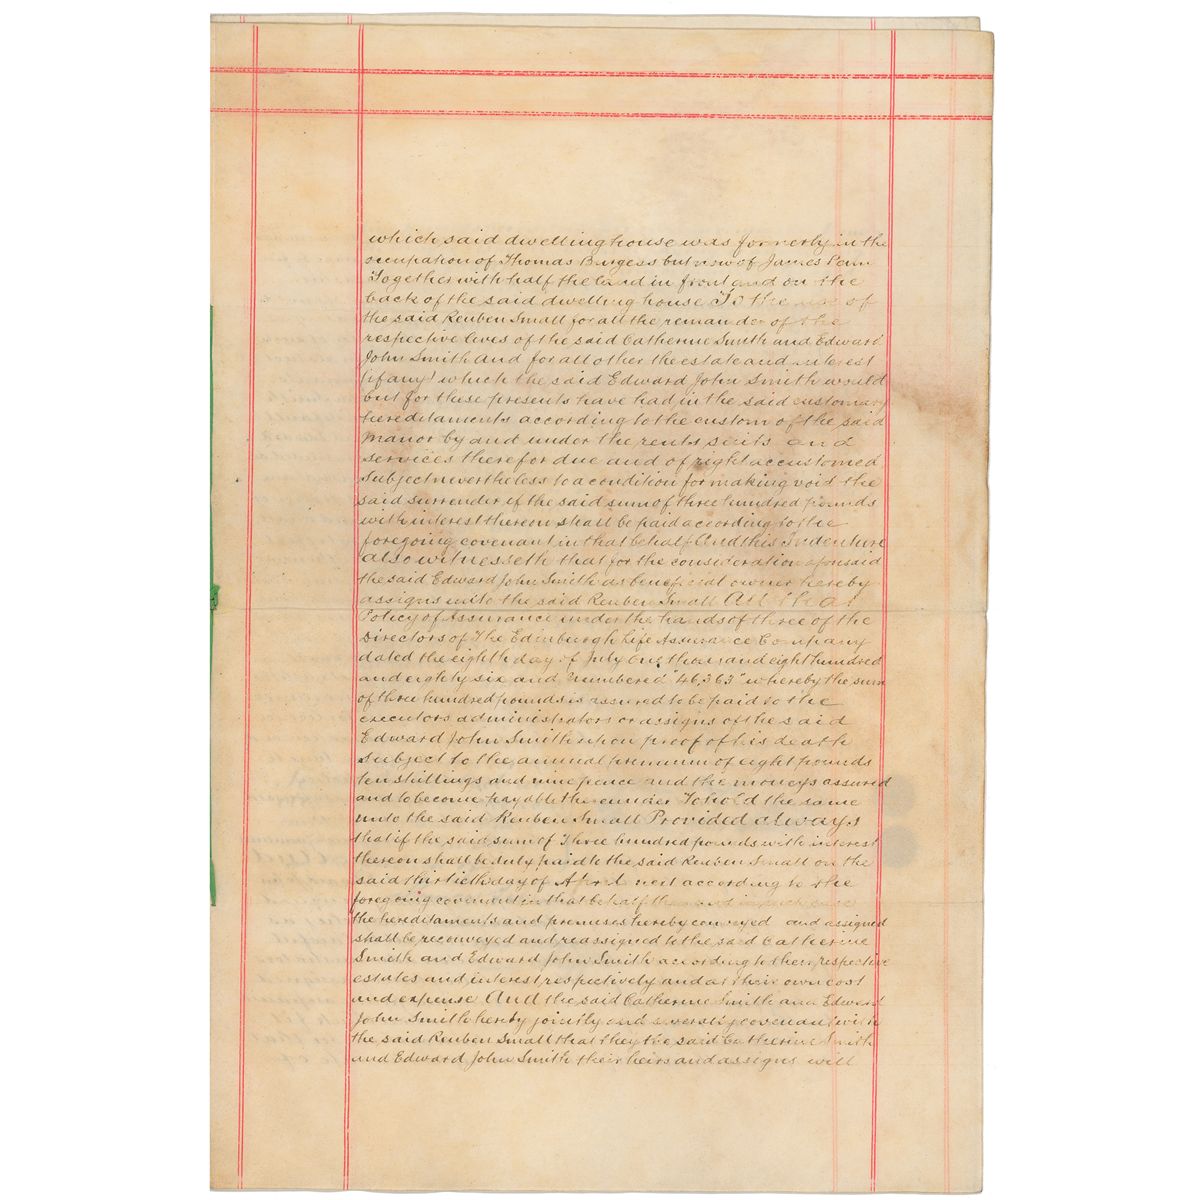 which said dwelling house was formerly in the
occupation of Thomas Burgess but now of James Penn
Together with half the land in front and on the
back of the said dwelling house To the use of
the said Reuben Small for all the remainder of the
respective lives of the said Catherine Smith and Edward
John Smith And for all other the estate and interest
(if any) which the said Edward John Smith would
but for these presents have had in the said customary
hereditaments according to the custom of the said
Manor by and under the rents suits and
services therefor due and of right accustomed
Subject nevertheless to a condition for making void the
said surrender if the said sum of three hundred pounds
with interest thereon shall be paid according to the
foregoing covenant in that behalf And this Indenture
also witnesseth that for the consideration aforesaid
the said Edward John Smith as beneficial owner hereby
assigns unto the said Reuben Small All that
Policy of Assurance under the hands of three of the
Directors of The Edinburgh Life Assurance Company
dated the eighth day of July One thousand eight hundred
and eighty six and numbered "46,363" whereby the sum
of three hundred pounds is assured to be paid to the
executors administrators or assigns of the said
Edward John Smith upon proof of his death
Subject to the annual premium of eight pounds
ten shillings and nine pence and the moneys assured
and to become payable thereunder To hold the same
unto the said Reuben Small Provided always
that if the said sum of Three hundred pounds with interest
thereon shall be duly paid to the said Reuben Small on the
said thirtieth day of April next according to the
foregoing covenant in that behalf then and in such case
the hereditaments and premises hereby conveyed and assigned
shall be reconveyed and reassigned to the said Catherine
Smith and Edward John Smith according to their respective
estates and interest respectively and at their own cost
and expense And the said Catherine Smith and Edward
John Smith hereby jointly and severally covenant with
the said Reuben Small that they the said Catherine Smith
and Edward John Smith their heirs and assigns will